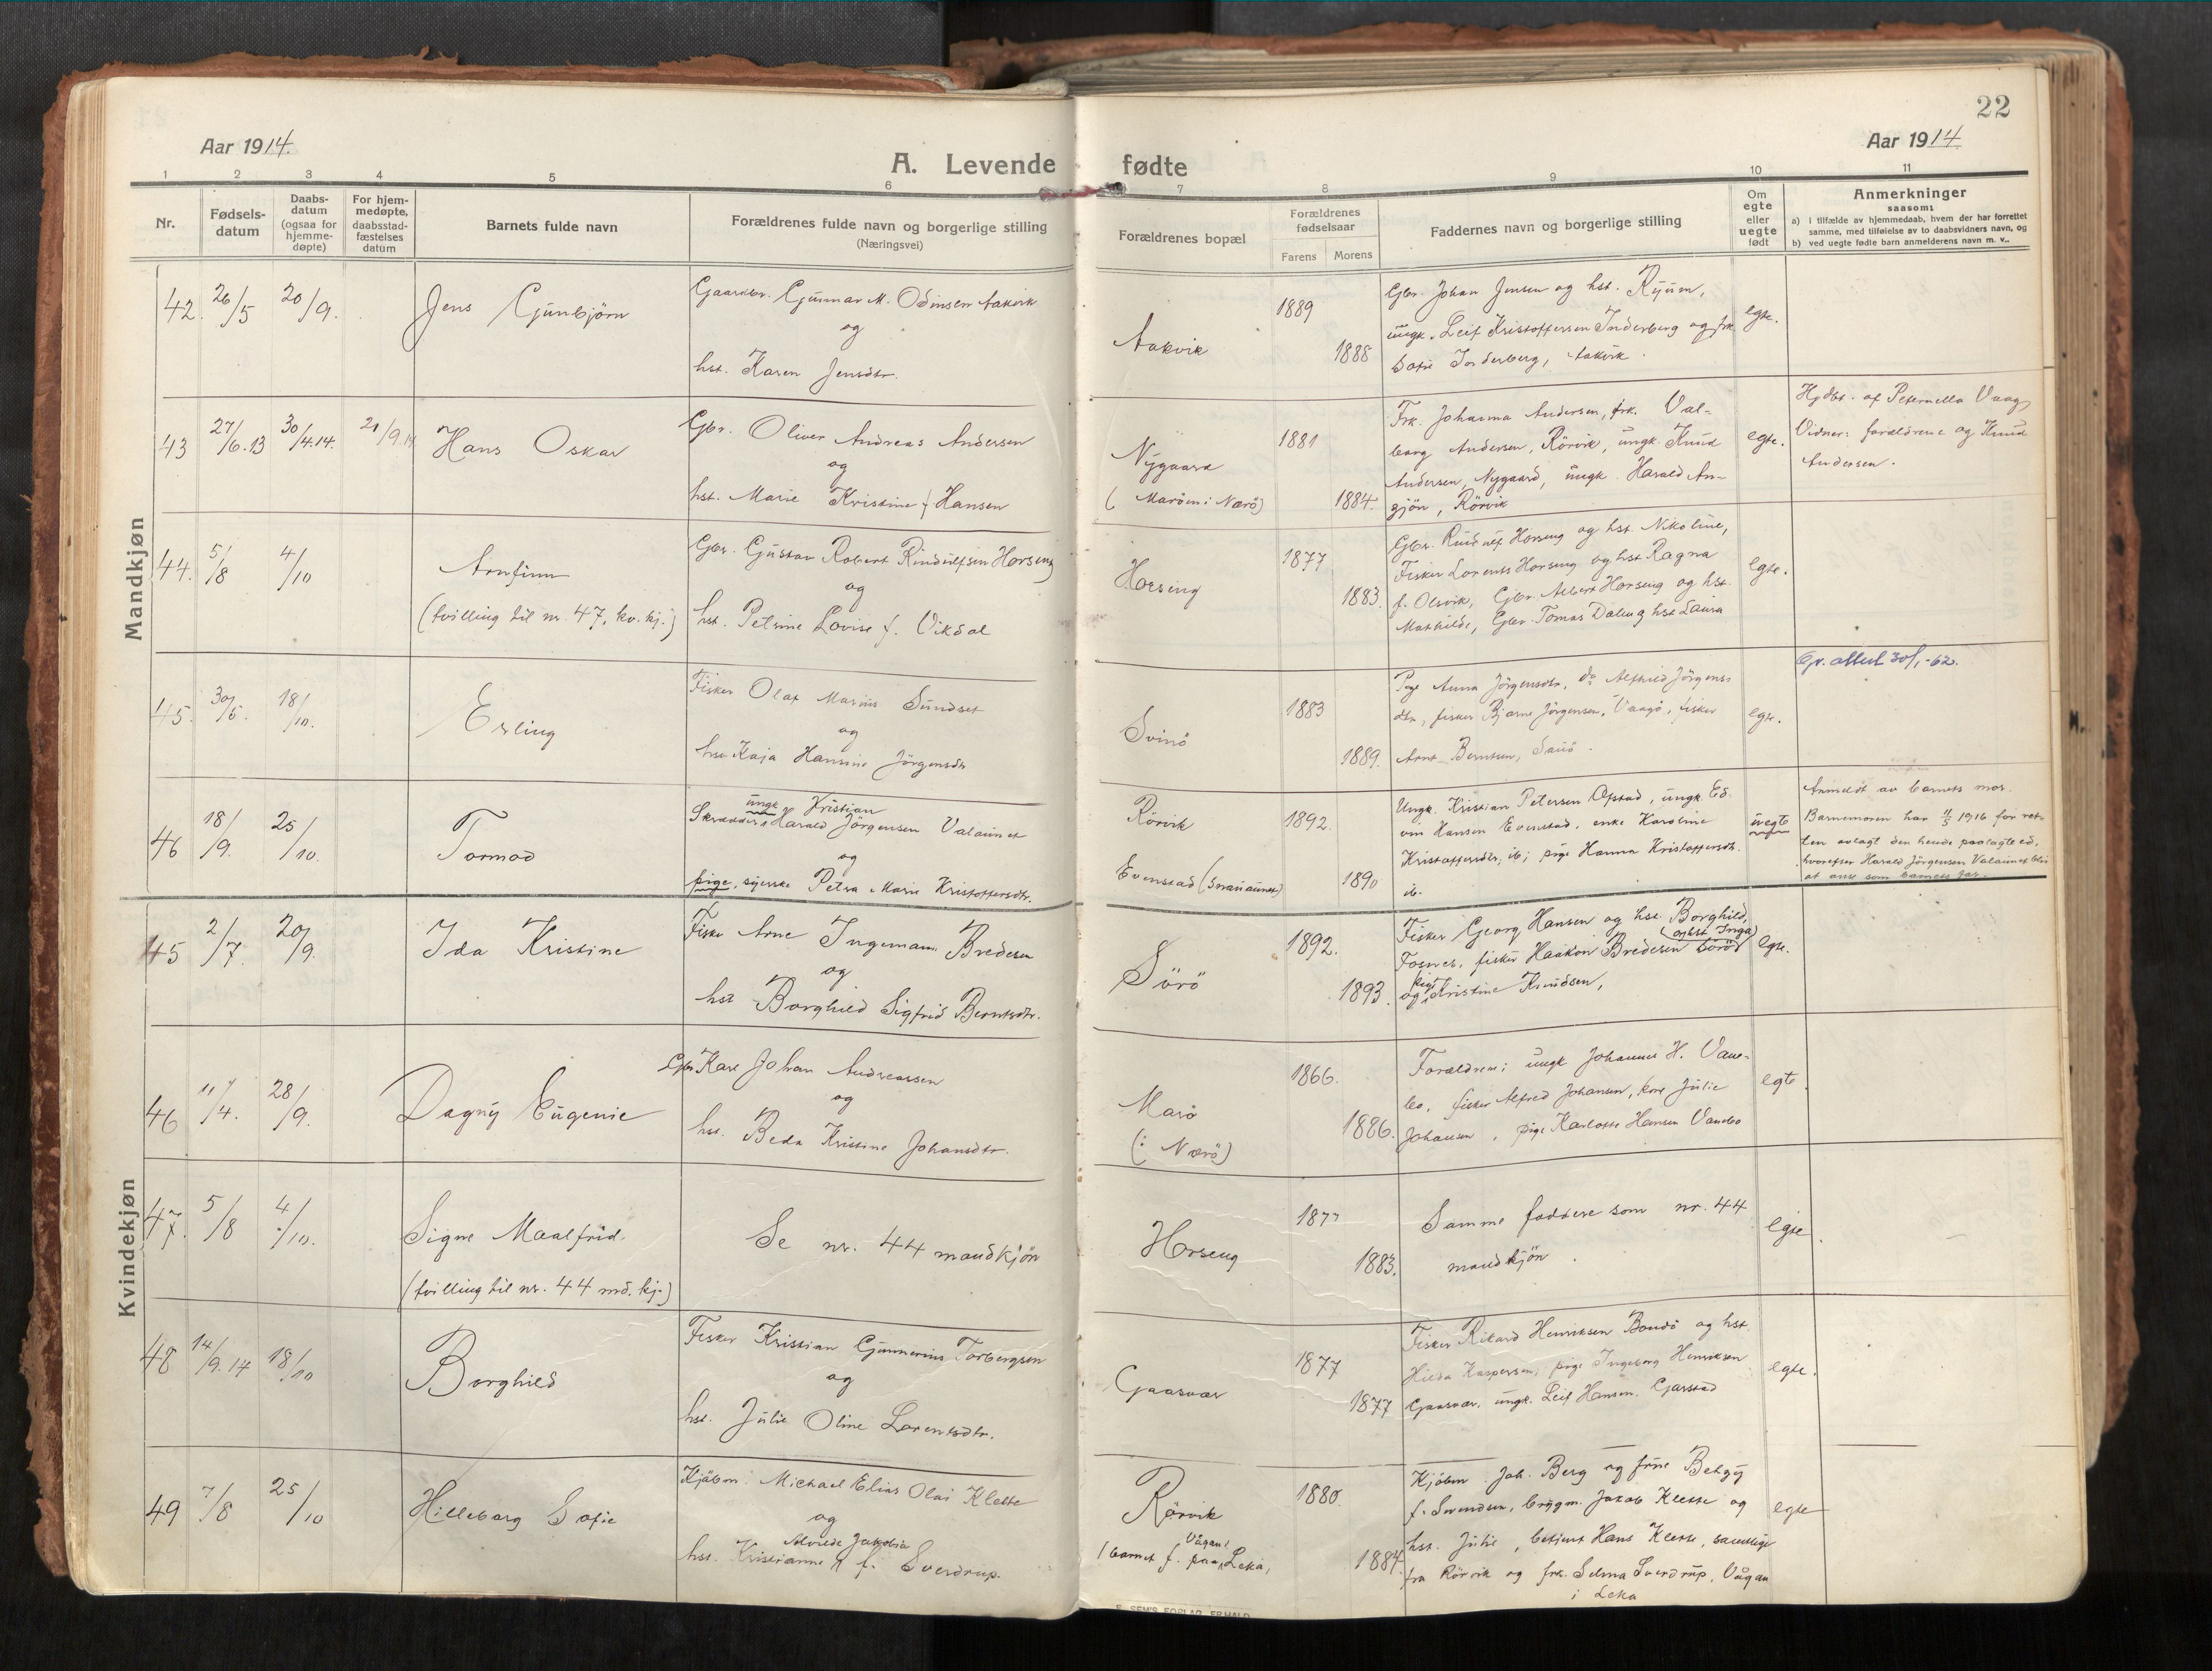 22
Aar 1914.
Aar 1914
A. Levende fødte
1 2 3 4 5 6 7 8 9 10 11
Nr.
Fødsels-
datum
Daabs-
datum
(ogsaa for
hjemme-
døpte)
For hjem-
medøpte,
daabsstad-
fæstelses
datum
Barnets fulde navn
Forældrenes fulde navn og borgerlige stilling
(Næringsvei)
Forældrenes bopæl
Forældrenes
fødselsaar
Farens Morens
Faddernes navn og borgerlige stilling
Om
egte
eller
uegte
født
Anmerkninger
saasom:
a) i tilfælde av hjemmedaab, hvem der har forrettet
samme, med tilføielse av to daabsvidners navn, og
b) ved uegte fødte barn anmelderens navn m. v..
Mandkjøn
42. 26/5 20/9.
Jens Gunbjörn
Gaardbr. Gunnar M. Odinsen Aakvik
og
hst. Karen Jensdtr.
Aakvik
1889
1888
Gbr. Johan Jensen og hst. Ryum,
ungk. Leif Kristoffersen Inderberg og frk.
Inderberg, Aakvik.
egte.
43 27/6.13 30/4.14. 21/9.14
Hans Oskar
Gbr. Oliver Andreas Andersen
og
hst. Marie Kristine f. Hansen
Nygaard
(Maröen i Nærö)
1881
1884.
Frk. Johanna Andersen, frk. Val-
borg Andersen, Rörvik, ungk. Knud
Andersen, Nygaard, ungk. Harald An-
gjön, Rörvik
egte.
Hjdbt. af Peternella Vaag
Vidner: forældrene og Knud
Andersen.
44. 5/8 4/10
Arnfinn
(tvilling til nr. 47, kv. kj.)
Gbr. Gustav Robert Rindulfsen Horseng
og
hst. Petrine Lovise f. Vikdal
Horseng
1877
1883.
Gbr. Rindulf Horseng og hst. Nikoline,
Fisker Lorents Horseng og hst. Ragna
f. Olsvik, Gbr. Albert Horseng og hst.
Mathilde, Gbr. Tomas Dalen og hst Laura
egte.
45. 30/5. 18/10.
Erling
Fisker Olaf Marius Sundset
og
hst Kaja Hansine Jörgensdtr
Svinö
1883
1889.
Pige Anna Jörgensdtr, do Alfhild Jörgens-
dtr, fisker Bjarne Jörgensen, Vaagö, fisker
Arnt Berntsen,
egte.
attest 30/1-62.
46 18/9. 25/10.
Tormod
ungk Kristian
Skrædder Harald Jörgensen Valaunet
og
pige, syerske Petra Marie Kristoffersdtr.
Rörvik
Evenstad (Snauaunet)
1892.
1890
Ungk. Kristian Petersen Opstad, ungk. Ed-
vin Hansen Evenstad, enke Karoline
Kristoffersdtr, ib; pige Hanna Kristoffersdtr.
ib.
uegte
Anmeldt av barnets mor.
Barnemoren har 11/5 1916 for ret-
ten avlagt den hende paalagte ed,
hvorefter Harald Jörgensen Valaunet blir
at anse som barnets far.
Kvindekjøn
45 2/7. 20/9.
Ida Kristine
Fisker Arne Ingemann Bredesen
og
hst Borghild Sigfrid Berntsdtr.
Sörö
1892.
1893.
Fisker Georg Hansen og hst. Borghild,
(og hst Inga)
Fosnes, fisker Haakon Bredesen Sörö
pige
og Kristine Knudsen,
egte.
46 11/4. 28/9.
Dagny Eugenie
Gbr Karl Johan Andreassen
og
hst. Beda Kristine Johansdtr.
Marö
(i Nærö)
1866.
1886.
Forældrene; ungk. Johannes H. Vane-
bo, fisker Alfred Johansen, kone Julie
Johansen, pige Karlotte Hansen Vanebo
egte.
47. 5/8 4/10.
Signe Maalfrid.
(tvilling til nr. 44 md. kj.)
Se nr. 44 mandkjön
Horseng
1877
1883.
Samme faddere som nr. 44
mandkjön.
egte.
48 14/9.14 18/10
Borghild
Fisker Kristian Gunnerius Torbergsen
og
hst. Julie Oline Lorentsdtr.
Gaasvær
1877
1877
Fisker Rikard Henriksen Bondö og hst.
Hilda Kaspersen, pige Ingeborg Henriksen
Gaasvær, ungk. Leif Hansen, Garstad
egte.
49 7/8 25/10
Hilleborg Sofie
Kjöbm. Michael Elias Olai Klette
og
Alvilde Jakobia
hst. Kristianne f. Sverdrup.
Rörvik
Vågan i
(barnet f. paa Leka,
1880.
1884.
Kjöbm. Joh. Berg og frue Betzy
f. Svendsen, brygm. Jakob Klette og
hst. Julie, betjent Hans Klette, samtlige
fra Rörvik og frk. Selma Sverdrup, Vågan
i Leka
egte